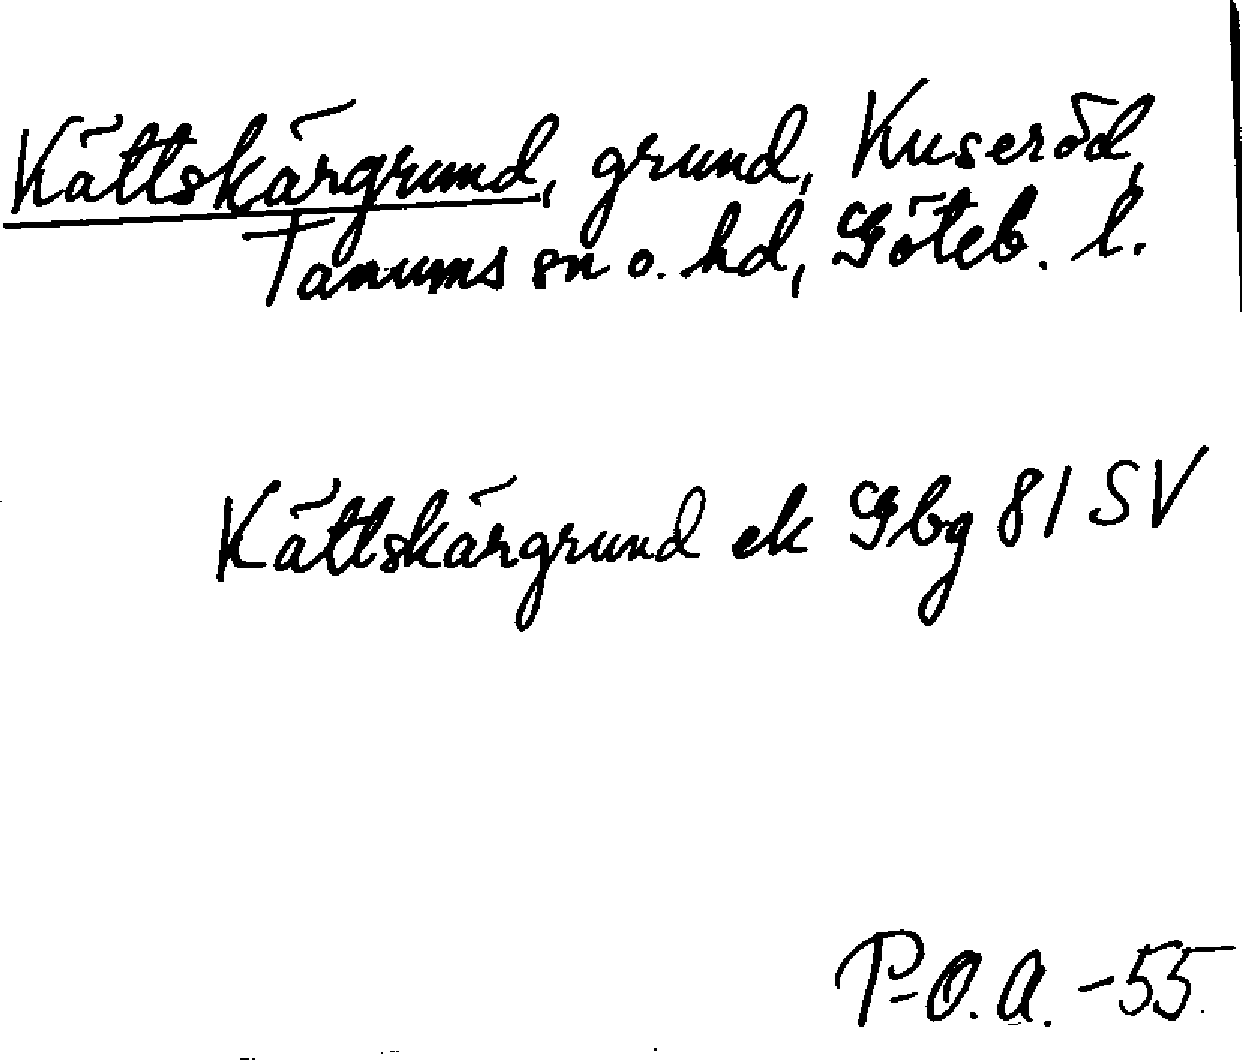 Kättskärgrund, grund, Kuseröd,
Tanums sn o. hd, Göteb. l.
Kättskärgrund ek Gbg 81 SV
P-O.A. -55.